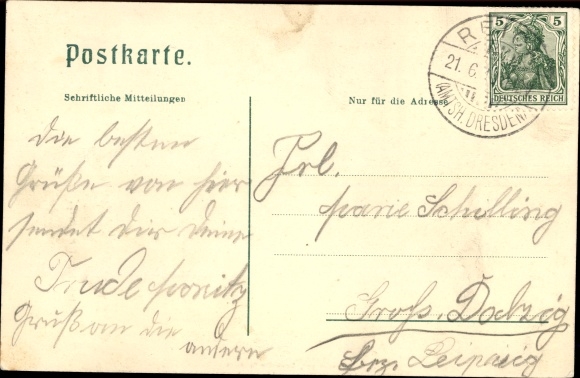 Postkarte.
Schriftliche Mitteilungen
Nur für die Adresse
5 5
DEUTSCHES REICH
21. 6.
(AMTSH. DRESDEN)
Die besten
Grüße von hier
sendet dir deine
Trude
Gruß an die
andern
Frl.
Marie Schilling
Groß. Dalzig
Bez. Leipzig